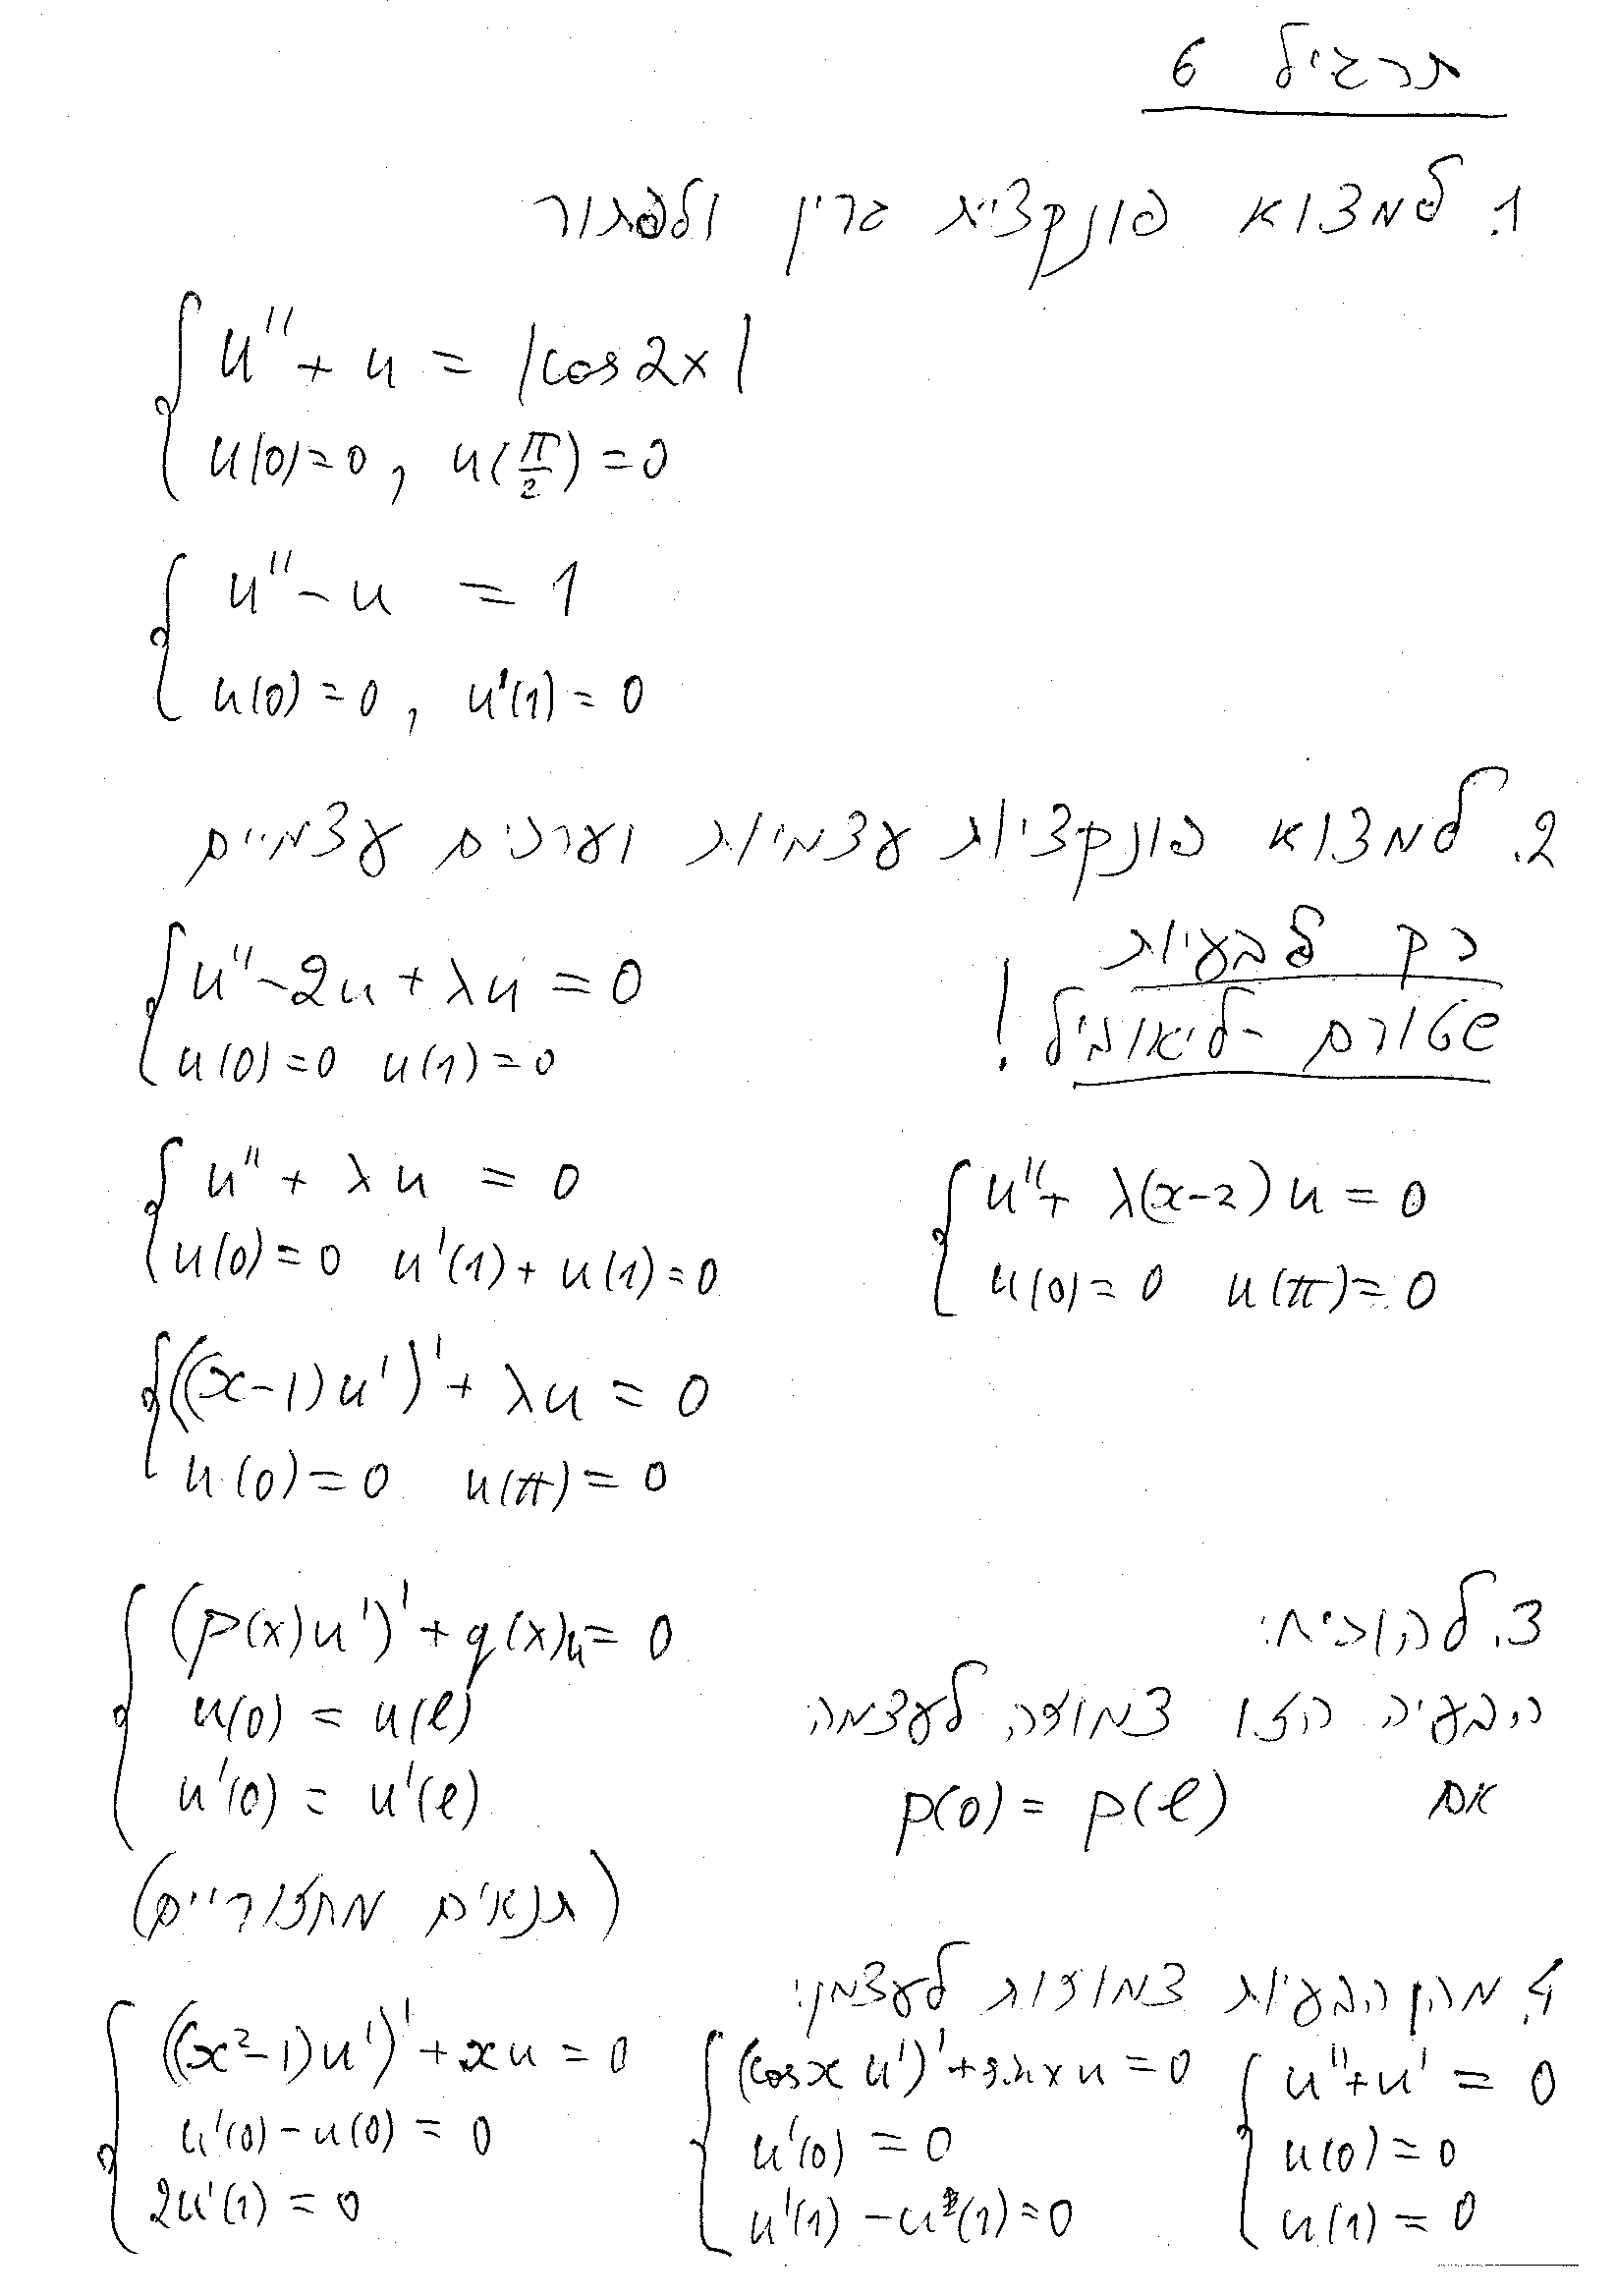 תרגיל 6
1. למצוא פונקצית גרין ולפתור
u'' + u = |cos2x|
u(0)=0, u(π/2)=0
u'' - u = 1
u(0)=0, u'(1)=0
2. למצוא פונקציות עצמיות וערכים עצמיים
רק לבעיות
שטורם-ליאוביל!
u'' - 2u + λu = 0
u(0)=0 u(1)=0
u'' + λu = 0
u(0)=0 u'(1)+u(1)=0
u'' + λ(x-2)u = 0
u(0)=0 u(π)=0
((x-1)u')' + λu = 0
u(0)=0 u(π)=0
3. להוכיח:
הבעיה הזו צמודה לעצמה
אם p(0) = p(l)
(p(x)u')' + q(x)u = 0
u(0) = u(l)
u'(0) = u'(l)
(תנאים מחזוריים)
4. מהן הבעיות צמודות לעצמן:
((x²-1)u')' + xu = 0
u'(0) - u(0) = 0
2u'(1) = 0
(cosx u')' + sinx u = 0
u'(0) = 0
u'(1) - u(1) = 0
u'' + u' = 0
u(0) = 0
u(1) = 0